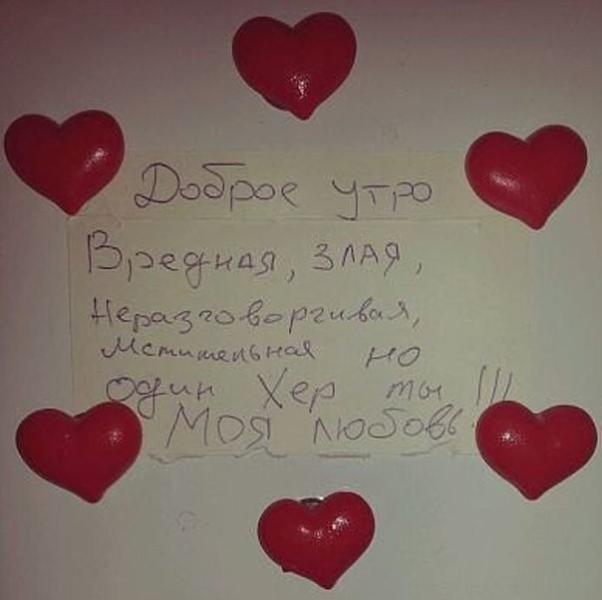 Доброе утро
Вредная, злая,
Неразговорчивая,
Мстительная но
один Хер ты !!!
Моя любовь.